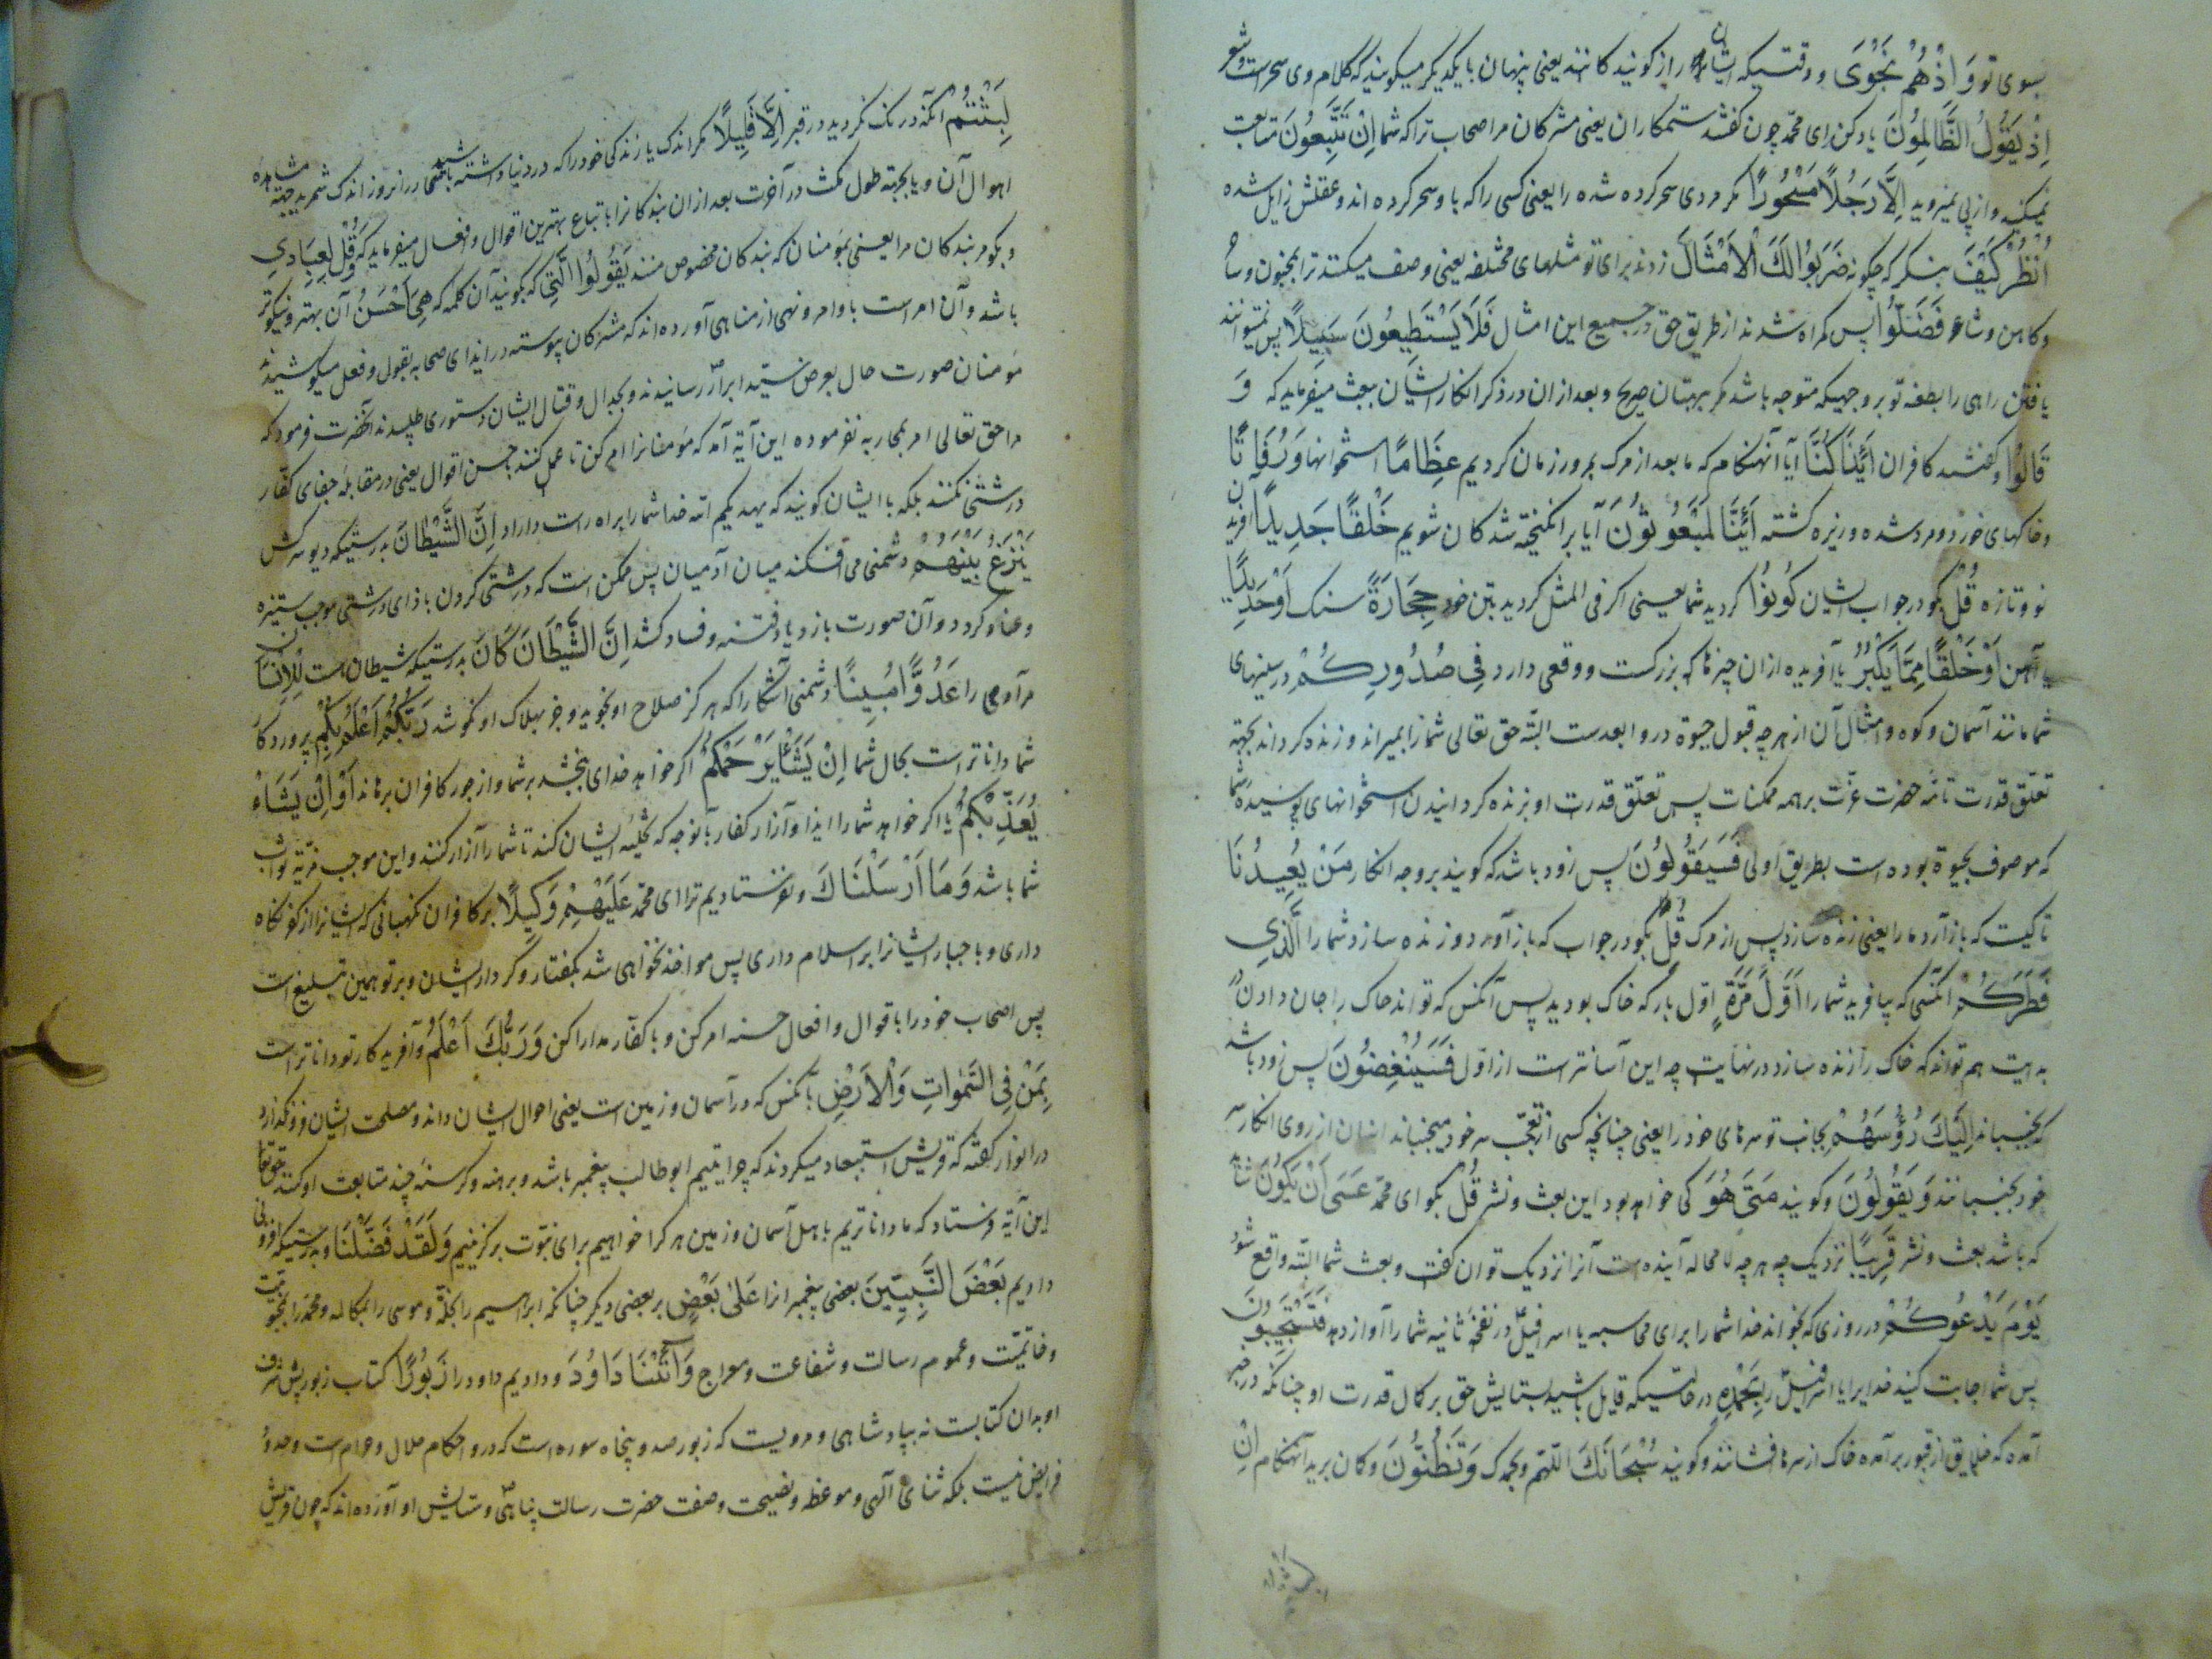 بسوی تو وَ اِذْهُمْ نَجْوَى و وقتیکه ایشان راز کویند کانند یعنی پنهان با یکدیکر میکویند که کلام وی سحرست و شعر
اِذْ يَقُولُ الظَّالِمُونَ یاد کن ای محمد چون کفتند ستمکاران یعنی مشرکان مر اصحاب ترا که شما اِنْ تَتَّبِعُونَ متابعت
نمیکنید و از پی نمیروید اِلَّا رَجُلًا مَسْحُورًا مکر مردی سحر کرده شده را یعنی کسی را که با و سحر کرده اند و عقلش زایل شده
اُنْظُرْ كَيْفَ بنکر که چکونه ضَرَبُوا لَكَ الْاَمْثَالَ زدند برای تو مثلهای مختلفه یعنی وصف میکنند ترا بمجنون و ساحر
و کاهن و شاعر فَضَلُّوا پس کمراه شدند از طریق حق در جمیع این امثال فَلَا يَسْتَطِيعُونَ سَبِيلًا پس نمیتوانند
یافتن راهی را بطعنه تو بر وجهیکه متوجه باشد مکر ببهتان صریح و بعد از ان در ذکر انکار ایشان ببعث میفرماید که وَ
قَالُوا و کفتند کافران اَئِذَا كُنَّا آیا آنهنکام که ما بعد از مرک بمرور زمان کردیم عِظَامًا استخوانها وَ رُفَاتًا
و خاکهای خورد و مرد شده و ریزه کشته اَئِنَّا لَمَبْعُوثُونَ آیا برانکیخته شدکان شویم خَلْقًا جَدِيدًا آفریدن
نو و تازه قُلْ بکو در جواب ایشان كُونُوا کردید شما یعنی اکر فی المثل کردید بتن خود حِجَارَةً سنک اَوْ حَدِيدًا
یا آهن اَوْ خَلْقًا مِمَّا يَكْبُرُ یا آفریده از ان چیزها که بزرکست و وقعی دارد فِي صُدُورِكُمْ در سینهای
شما مانند آسمان و کوه و امثال آن از هر چه قبول حیوة درو ابعدست البته حق تعالی شما را بمیراند و زنده کرداند بجهة
تعلّق قدرت تامّه حضرت عزّت بر همه ممکنات پس تعلّق قدرت او بزنده کردانیدن استخوانهای پوسیده شما
که موصوف بحیوة بوده است بطریق اولی فَسَيَقُولُونَ پس زود باشد که کویند بر وجه انکار مَنْ يُعِيدُنَا
تا کیست که باز آرد ما را یعنی زنده سازد پس از مرک قُلْ بکو در جواب که باز آورد و زنده سازد شما را الَّذِي
فَطَرَكُمْ آنکسی که بیافرید شما را اَوَّلَ مَرَّةٍ اوّل بار که خاک بودید پس آنکس که تواند خاک را جان دادن در
بدایت هم تواند که خاک را زنده سازد در نهایت چه این آسانترست از اوّل فَسَيُنْغِضُونَ پس زود باشد
که بجنبانند اِلَيْكَ رُؤُسَهُمْ بجانب تو سرهای خود را یعنی چنانچه کسی از تعجّب سر خود میجنباند ایشان از روی انکار سر
خود بجنبانند وَ يَقُولُونَ و کویند مَتَى هُوَ کی خواهد بود این بعث و نشر قُلْ بکو ای محمّد عَسَى اَنْ يَكُونَ شاید
که باشد بعث و نشر قَرِيبًا نزدیک چه هر چه لا محاله آینده است آنرا نزدیک توان کفت و بعث شما البته واقع شود
يَوْمَ يَدْعُوكُمْ در روزی که بخواند خدا شما را برای محاسبه یا اسرافیلؑ در نفخهٔ ثانیه شما را آواز دهد فَتَسْتَجِيبُونَ
پس شما اجابت کنید خدایرا یا اسرافیل را بِحَمْدِهِ در حالتیکه قایل باشید بستایش حق بر کمال قدرت او چنانکه در خبر
آمده که خلایق از قبور بر آمده خاک از سرها فشانند و کویند سُبْحَانَكَ اللّهمّ و بحمدک وَ تَظُنُّونَ و کمان برید آنهنکام اِنْ
لَبِثْتُمْ آنکه درنک نکردید در قبر اِلَّا قَلِيلًا مکر اندک یا زندکی خود را که در دنیا داشته باشید در ان روز اندک شمرید بجهة مشاهده
اهوال آن و یا بجهة طول مکث در آخرت بعد از ان بندکانرا باتباع بهترین اقوال و افعال میفرماید که وَ قُلْ لِعِبَادِي
و بکو مر بندکان مرا یعنی بمؤمنان که بندکان مخصوص منند يَقُولُوا الَّتِي که بکویند آن کلمه که هِيَ اَحْسَنُ آن بهتر و نیکوتر
باشد و آن امرست باوامر و نهی از مناهی آورده اند که مشرکان پیوسته در ایذای صحابه بقول و فعل میکوشیدند
مؤمنان صورت حال بعرض سیّد ابرارؐ رسانیدند و بجدال و قتال ایشان دستوری طلبیدند آنحضرت فرمود که
مرا حق تعالی امر بمحاربه نفرموده این آیة آمد که مؤمنانرا امر کن تا عمل کنند باحسن اقوال یعنی در مقابلهٔ جفای کفّار
درشتی نکنند بلکه با ایشان کویند که یهدیکم الله خدا شما را براه راست داراد اِنَّ الشَّيْطَانَ بدرستیکه دیو سرکش
يَنْزَغُ بَيْنَهُمْ دشمنی می افکند میان آدمیان پس ممکن است که درشتی کردن باذای درشتی موجب ستیزه
و عناد کردد و آن صورت بازدیاد فتنه و فساد کشد اِنَّ الشَّيْطَانَ كَانَ بدرستیکه شیطان هست لِلْاِنْسَانِ
مر آدمی را عَدُوًّا مُبِينًا دشمنی آشکارا که هرکز صلاح او نجوید و جز بهلاک او نکوشد رَبُّكُمْ اَعْلَمُ بِكُمْ پروردکار
شما داناترست بحال شما اِنْ يَشَأْ يَرْحَمْكُمْ اکر خواهد خدای ببخشد بر شما و از جور کافران برهاند اَوْ اِنْ يَشَاءْ
يُعَذِّبْكُمْ یا اکر خواهد شما را ایذا و آزار کفار بآنوجه که تخلیهٔ ایشان کند تا شما را آزار کنند و این موجب مزیّة ثواب
شما باشد وَ مَا اَرْسَلْنَاكَ و نفرستادیم ترا ای محمّد عَلَيْهِمْ وَكِيلًا بر کافران نکهبانی که ایشانرا از کفر نکاه
داری و باجبار ایشانرا بر اسلام داری پس مواخذ نخواهی شد بکفتار و کردار ایشان و بر تو همین تبلیغ است
پس اصحاب خود را باقوال و افعال حسنه امر کن و با کفّار مدارا کن وَ رَبُّكَ اَعْلَمُ و آفریدکار تو داناترست
بِمَنْ فِي السَّمٰوَاتِ وَ الْاَرْضِ بآنکس که در آسمان و زمین است یعنی احوال ایشان داند و مصلحت ایشان فرو نکذارد
در انوار کفته که قریش استبعاد میکردند که چرا یتیم ابوطالب پیغمبر باشد و برهنه و کرسنهٔ چند متابعت او کنند حق تعالی
این آیة فرستاد که ما داناتریم باهل آسمان و زمین هر کرا خواهیم برای نبوّت برکزینیم وَ لَقَدْ فَضَّلْنَا و بدرستیکه افزونی
دادیم بَعْضَ النَّبِيِّينَ بعضی پیغمبرانرا عَلَى بَعْضٍ بر بعضی دیکر چنانکه ابراهیم را بخلّة و موسی را بمکالمه و محمّد را بمحبّت
و خاتمیّت و عموم رسالت و شفاعت و معراج وَ آتَيْنَا دَاوُدَ و دادیم داود را زَبُورًا کتاب زبور پس شرف
او بدان کتابست نه بپادشاهی و مرویست که زبور صد و پنجاه سوره است که درو احکام حلال و حرام است و حدود
فرایض نیست بلکه ثنای آلهی و موعظه و نصیحت و صفت حضرت رسالت پناهیؐ و ستایش او آورده اند که چون قریش